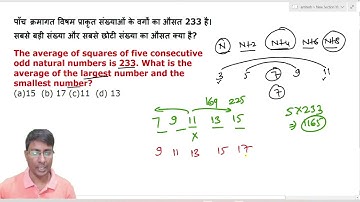 पाँच क्रमागत विषम प्राकृत संख्याओं के वर्गों का औसत 233 है।
सबसे बड़ी संख्या और सबसे छोटी संख्या का औसत क्या है?
The average of squares of five consecutive
odd natural numbers is 233. What is the
average of the largest number and the
smallest number?
(a)15 (b) 17 (c)11 (d) 13
N N+2 N+4 N+6 N+8
3 5 7 9 11
7
169 225
7 9 11 13 15
x
9 11 13 15 17
5x233
⇒ 1165